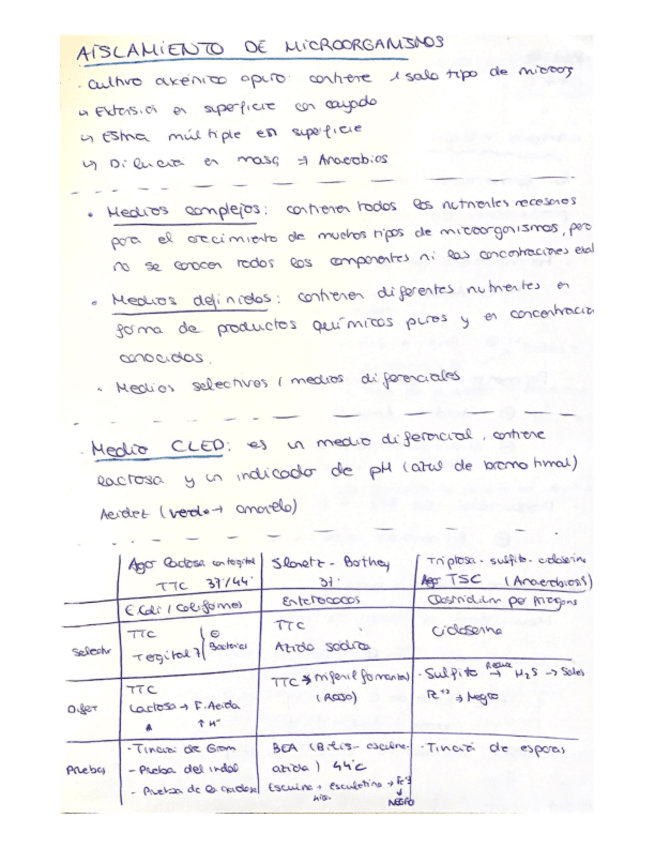 AISLAMIENTO DE MICROORGANISMOS
· Cultivo axénico o puro: contiene 1 solo tipo de microog
↳ Extensión en superficie con cayado
↳ Estria múltiple en superficie
↳ Dilución en masa ⇒ Anaerobios
• Medios complejos: contienen todos los nutrientes necesarios
para el crecimiento de muchos tipos de microorganismos, pero
no se conocen todos los componentes ni las concentraciones exac
• Medios definidos: contienen diferentes nutrientes en
forma de productos químicos puros y en concentracion
conocidas.
• Medios selectivos / medios diferenciales
· Medio CLED: es un medio diferencial. contiene
lactosa y un indicador de pH (azul de bromo timol)
Acidez (verde → amarillo)
Agar lactosa con tergitol
TTC 37/44°
Slanetz - Bathey
37°
Triptosa - sulfito - cicloserina
Agar TSC (Anaerobiosis)
E. Coli / Coliformes
Enterococos
Clostridium perfringens
Selectiv
TTC
Tergitol 7
⊕ Bacterias
TTC
Azida sódica
Cicloserina
Difer
TTC
Lactosa → F. Acida
↑ H⁺
TTC → trifenil formazan
(Rojo)
· Sulfito Reduce → H₂S → Sales
Fe⁺³ → Negro
Pruebas
· Tinción de Gram
- Prueba del indol
- Prueba de la oxidasa
BEA (Bilis - esculina-
azida) 44°C
Esculina → esculetina → Fe⁺³
↓
NEGRO
· Tinción de esporas